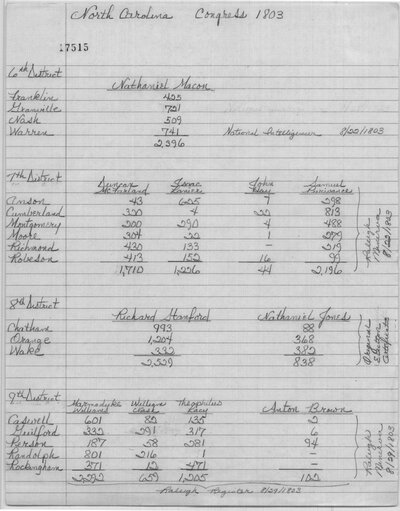 North Carolina Congress 1803
17515
6th District
Nathaniel Macon
Franklin 425
Granville 721
Nash 509
Warren 741 National Intelligencer 8/22/1803
2,396
7th District
Duncan McFarland Isaac Lanier John Hay Samuel Purviance
Anson 43 625 1 298
Cumberland 320 4 22 813
Montgomery 200 290 4 488
Moore 304 22 1 279
Richmond 430 133 — 219
Robeson 413 152 16 99
1,710 1,226 44 2,196
Raleigh Minerva 8/22/1803
8th District
Richard Stanford Nathaniel Jones
Chatham 993 88
Orange 1,204 368
Wake 332 382
2,529 838
Original Election Certificates
9th District
Marmaduke Williams William Cash Theophilus Lacy Anton Brown
Caswell 601 82 135 2
Guilford 332 291 317 6
Person 187 58 281 94
Randolph 801 216 1 —
Rockingham 371 12 471 —
2,292 659 1,205 102
Raleigh Minerva 8/29/1803
Raleigh Register 8/29/1803